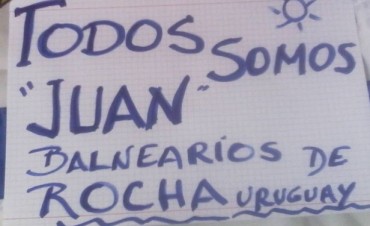 TODOS
SOMOS
"JUAN"
BALNEARIOS DE
ROCHA URUGUAY